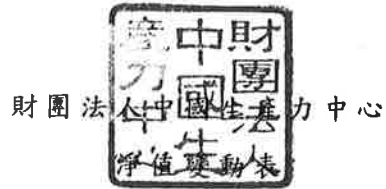 財團法人中國生產力中心
淨值變動表
財團法人中國生產力中心